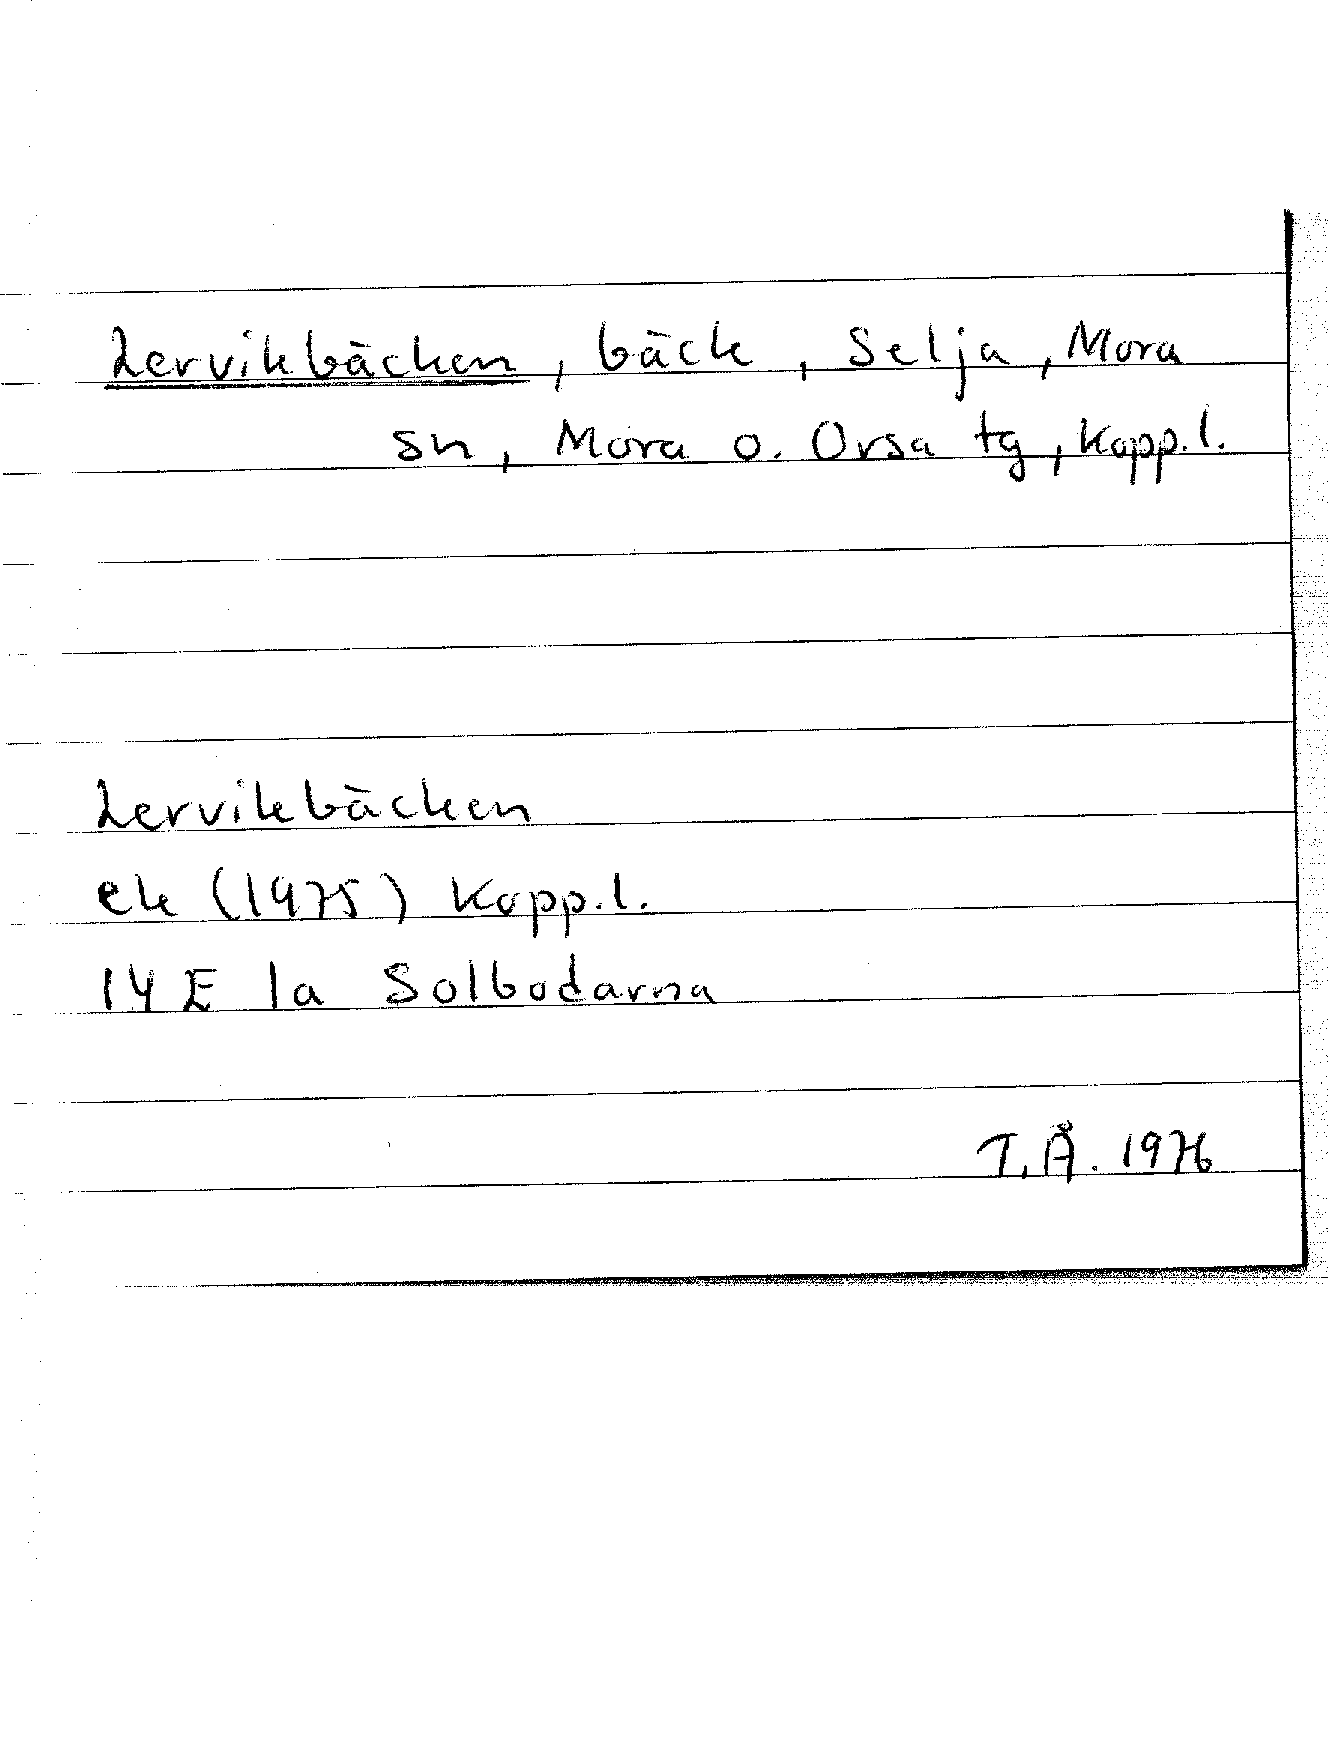 Lervikbäcken, bäck, Selja, Mora
sn, Mora o. Orsa tg, Kopp.l.
Lervikbäcken
ek (1975) Kopp.l.
14 E 1a Solbodarna
T.Å. 1976